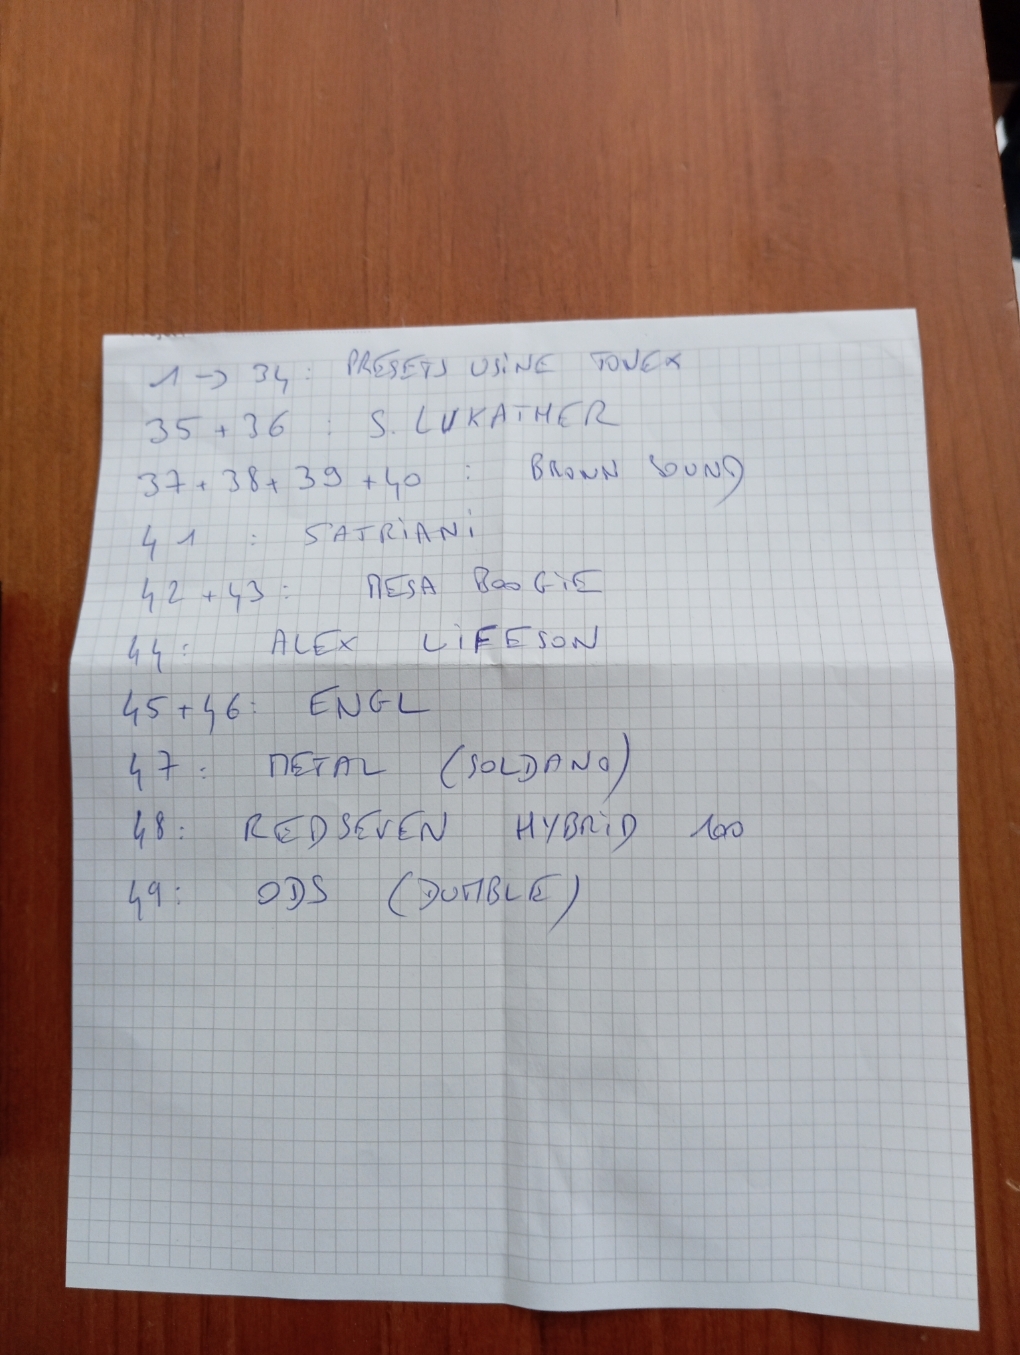 1 → 34 : PRESETS USiNE TONEX
35 + 36 : S. LUKATHER
37 + 38 + 39 + 40 : BROWN SOUND
41 : SATRiANi
42 + 43 : MESA BOOGiE
44 : ALEX LiFESON
45 + 46 : ENGL
47 : METAL (SOLDANO)
48 : REDSEVEN HYBRiD 100
49 : ODS (DUMBLE)